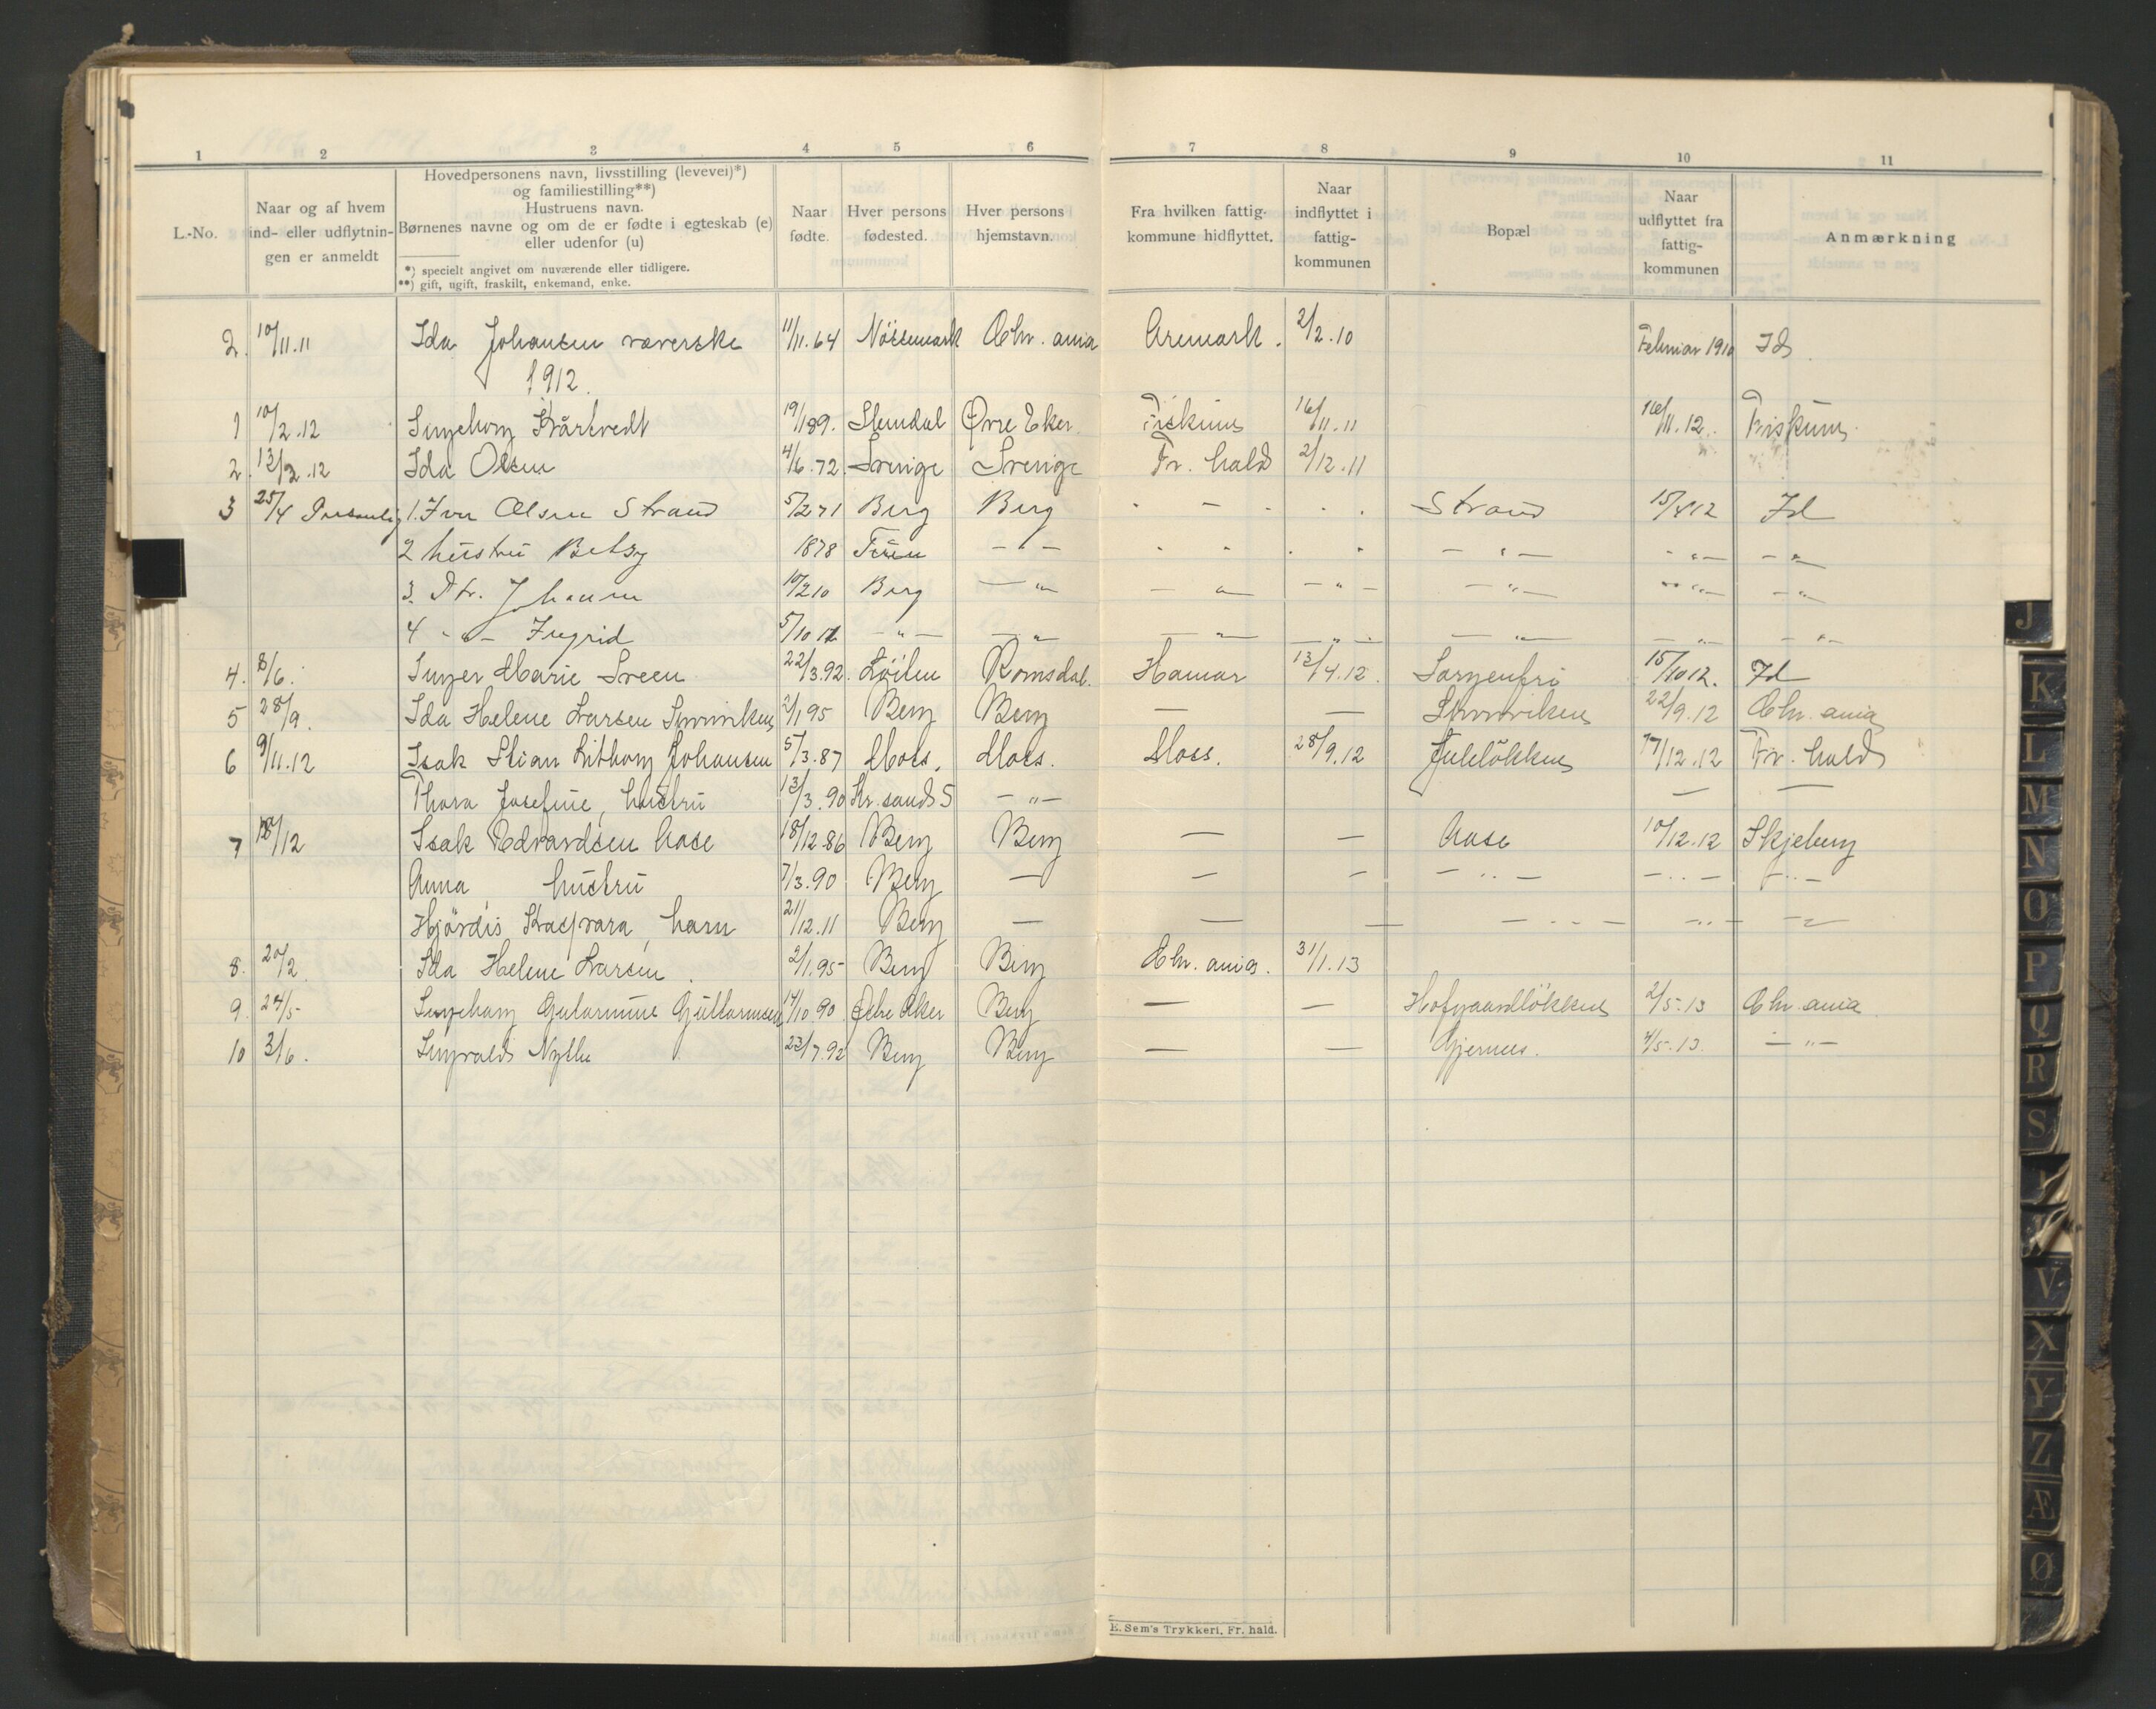 1 2 3 4 5 6 7 8 9 10 11
L.-No.
Naar og af hvem ind- eller udflytnin- gen er anmeldt
Hovedpersonens navn, livsstilling (levevei)*) og familiestilling**)
Hustruens navn.
Børnenes navne og om de er fødte i egteskab (e) eller udenfor (u)
*) specielt angivet om nuværende eller tidligere.
**) gift, ugift, fraskilt, enkemand, enke.
Naar fødte.
Hver persons fødested.
Hver persons hjemstavn.
Fra hvilken fattig- kommune hidflyttet.
Naar indflyttet i fattig- kommunen
Bopæl
Naar udflyttet fra fattig- kommunen
Anmærkning
2. 10/11.11 Ida Johansen væverske 11/11.64 Nössemark Chr. ania Aremark. 2/2.10 Februar 1910 Id.
1912.
1 10/2.12 Ingeborg 19/1 89. Øvre Eker Fiskum 16/11.11 16/11.12. Fiskum.
2. 13/2.12 Ida Olsen 4/6.72. Sverige Sverige Fr. hald 2/12.11
3 25/4 Personlig 1. Iver Olsen Strand 5/2 71 Berg Berg - - - . . Strand 15/4 12 Id
2 hustru Betsy 1878 - " - . . . . - " - - " - - " -
3. Dtr. Johanne 10/2 10 Berg - " - " - - " - - " - - " - - " -
4 - " - Ingrid 5/10 11 - " - - " - " - - " - - " - - " - - " -
4. 8/6. Inger Marie Sveen 22/3.92. Löiten Romsdal. Hamar 13/4.12. Sorgenfri 15/10 12. Id
5 28/9. Ida Helene Larsen 2/1 95 Berg Berg — — 22/9.12 Chr. ania
6 9/11.12 Isak Stian Johansen 5/3.87 Moss. Moss. Moss. 28/9.12 Julelökken 17/12.12 Fr. hald
Thora Josefine, hustru 13/3.90 Kr. sand S - " - — —
7 18/12 Isak Edvardsen Aase 18/12.86 Berg Berg — — Aase 10/12.12 Skjeberg
Anna, hustru 7/3.90 Berg — — — - " - - " - - " -
Hjördis, barn 21/12.11 Berg — — — - " - - " - - " -
8. 20/2. Ida Helene Larsen. 2/1.95 Berg Berg Chr. ania. 31/1.13
9. 24/5- Ingeborg Gutormine Guttormsen 14/10.90. Østre Aker Berg — — Hofgaardlökken 2/5.13 Chr. ania
10 3/6. Ingvald 23/7.92 Berg Berg — — 4/5.13. - " -
E. Sem's Trykkeri, Fr. hald.
J
K
L
M
N
O
P
Q
R
S
V
X
Y
Z
Æ
Ø